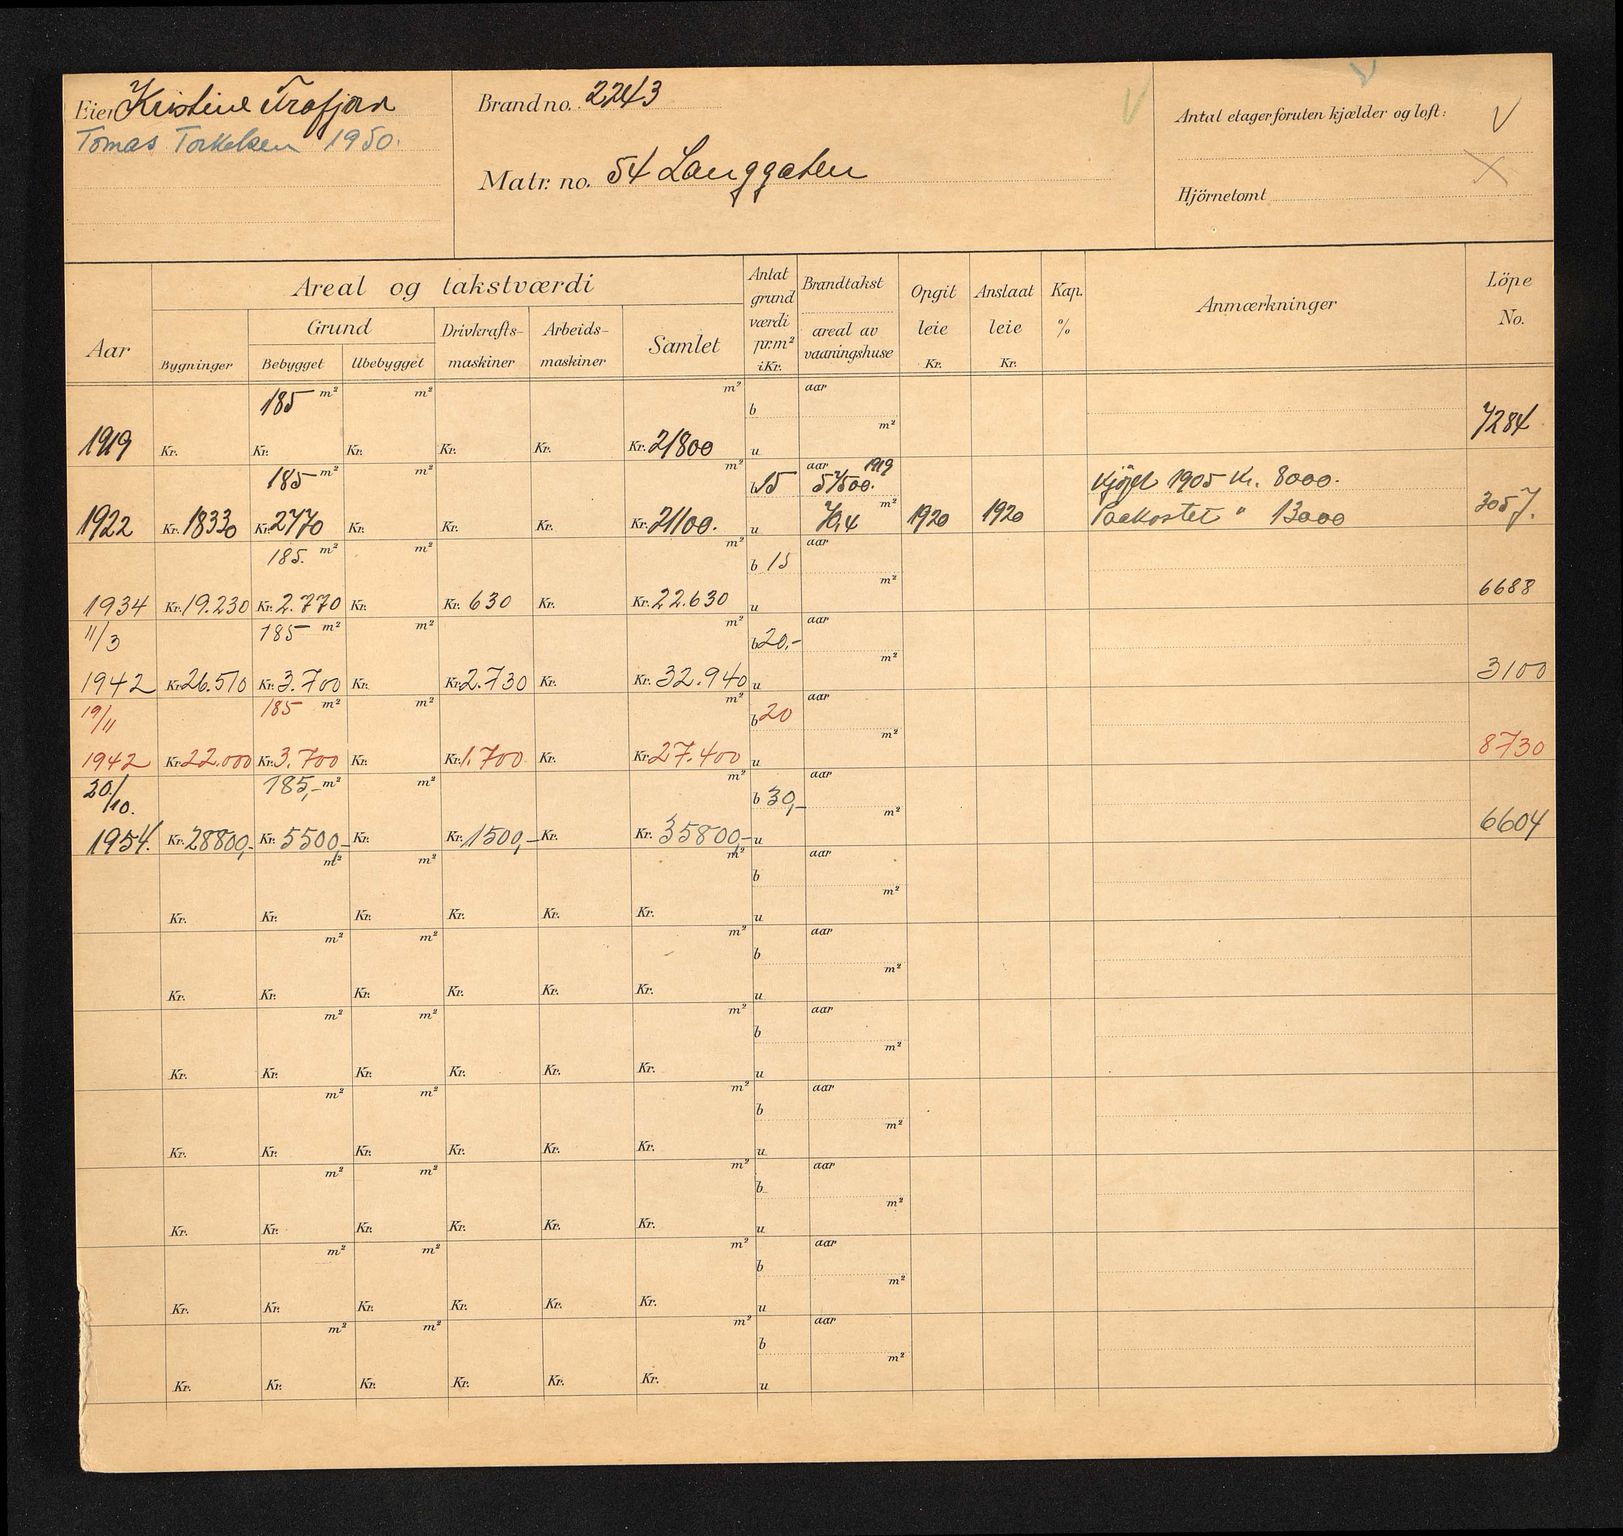 Eier Kristine Frafjord
Tomas Torkelsen 1950.
Brand no. 2243
Matr. no. 54 Langgaten
Antal etager foruten kjælder og loft:
Hjörnetomt
Aar
Areal og takstværdi
Bygninger
Grund
Bebygget
Ubebygget
Drivkrafts-
maskiner
Arbeids-
maskiner
Samlet
Antat
grund
værdi
pr.m²
i Kr.
Brandtakst
areal av
vaaningshuse
Opgit
leie
Kr.
Anslaat
leie
Kr.
Kap.
%
Anmærkninger
Löpe
No.
185 m² m² m² b aar m²
1919 Kr. Kr. Kr. Kr. Kr. Kr. 21800 u 7284
185 m² m² m² b 15 aar 1919 57500. m² Kjöpt 1905 Kr. 8000.
1922 Kr. 18330 Kr. 2770 Kr. Kr. Kr. Kr. 21100. u 70,4 1920 1920 Paakostet " 13000 3057.
185. m² m² m² b 15 aar m²
1934 Kr. 19.230 Kr. 2.770 Kr. Kr. 630 Kr. Kr. 22.630 u 6688
11/3 185 m² m² m² b 20,- aar m²
1942 Kr. 26.510 Kr. 3.700 Kr. Kr. 2.730 Kr. Kr. 32.940 u 3100
19/11 185 m² m² m² b 20 aar m²
1942 Kr. 22.000 Kr. 3.700 Kr. Kr. 1.700 Kr. Kr. 27.400 u 8730
20/10. 185,- m² m² m² b 30,- aar m²
1954. Kr. 28800,- Kr. 5500,- Kr. Kr. 1500,- Kr. Kr. 35800,- u 6604
m² m² m² b aar m²
Kr. Kr. Kr. Kr. Kr. Kr. u
m² m² m² b aar m²
Kr. Kr. Kr. Kr. Kr. Kr. u
m² m² m² b aar m²
Kr. Kr. Kr. Kr. Kr. Kr. u
m² m² m² b aar m²
Kr. Kr. Kr. Kr. Kr. Kr. u
m² m² m² b aar m²
Kr. Kr. Kr. Kr. Kr. Kr. u
m² m² m² b aar m²
Kr. Kr. Kr. Kr. Kr. Kr. u
m² m² m² b aar m²
Kr. Kr. Kr. Kr. Kr. Kr. u